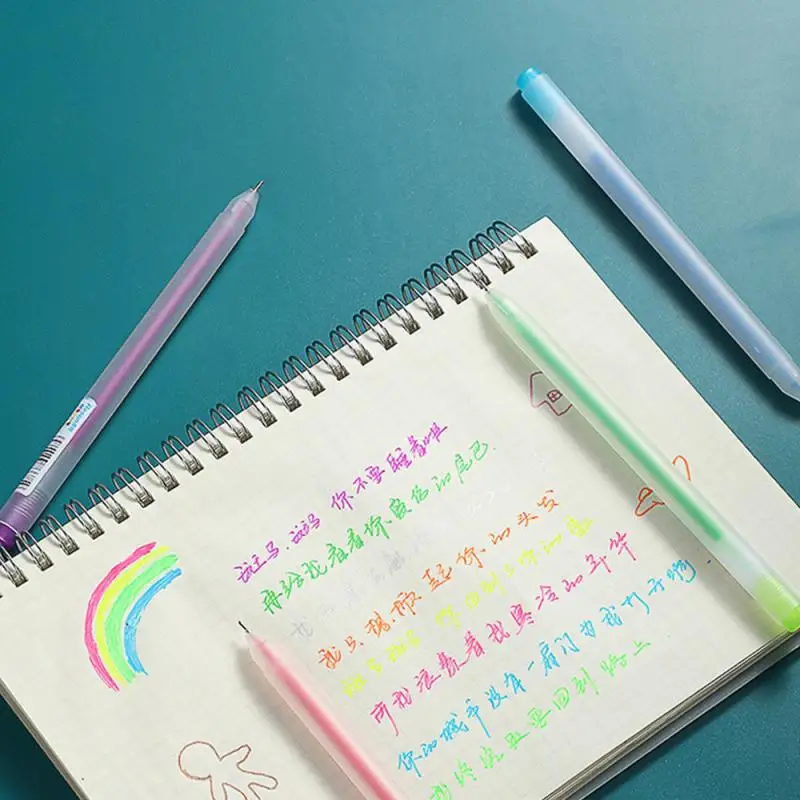 斑马、斑马 你不要睡着啦
再给我看看你受伤的尾巴
我只想 顺 起你的头发
斑马 斑马 你回到了你的家
而我浪费着我寒冷的年华
你的城市没有一扇门为我打开啊.
我终究还要回到路上